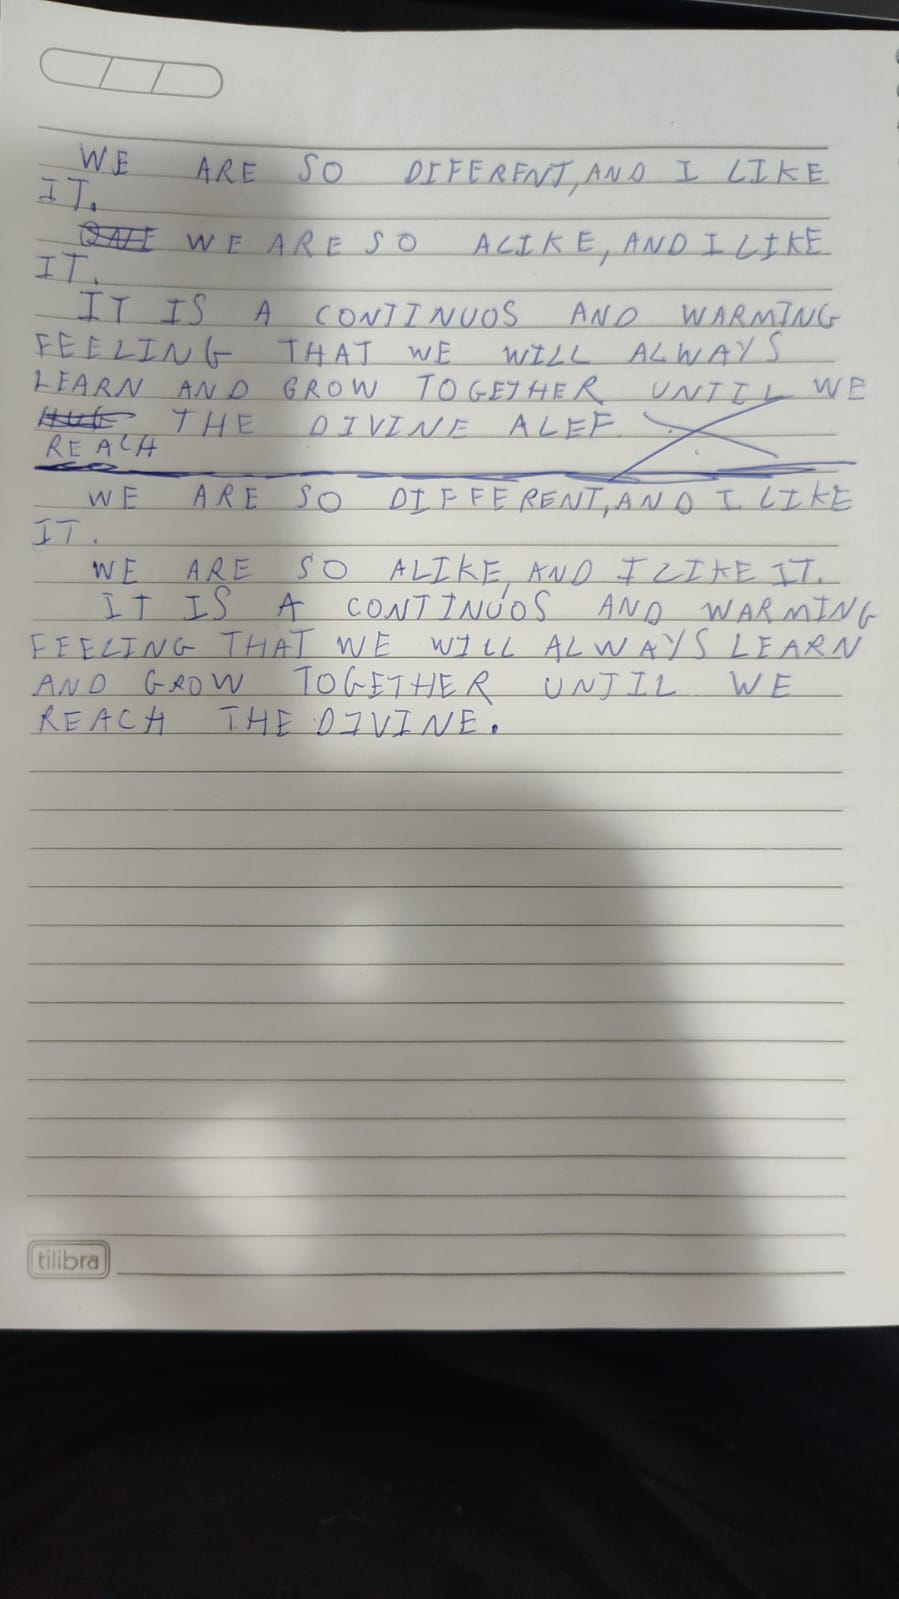 WE ARE SO DIFERENT, AND I LIKE
IT.
WE ARE SO ALIKE, AND I LIKE
IT.
IT IS A CONTINUOS AND WARMING
FEELING THAT WE WILL ALWAYS
LEARN AND GROW TOGETHER UNTIL WE
THE DIVINE ALEF
REACH
WE ARE SO DIFFERENT, AND I LIKE
IT.
WE ARE SO ALIKE, AND I LIKE IT.
IT IS A CONTINUOS AND WARMING
FEELING THAT WE WILL ALWAYS LEARN
AND GROW TOGETHER UNTIL WE
REACH THE DIVINE.
tilibra